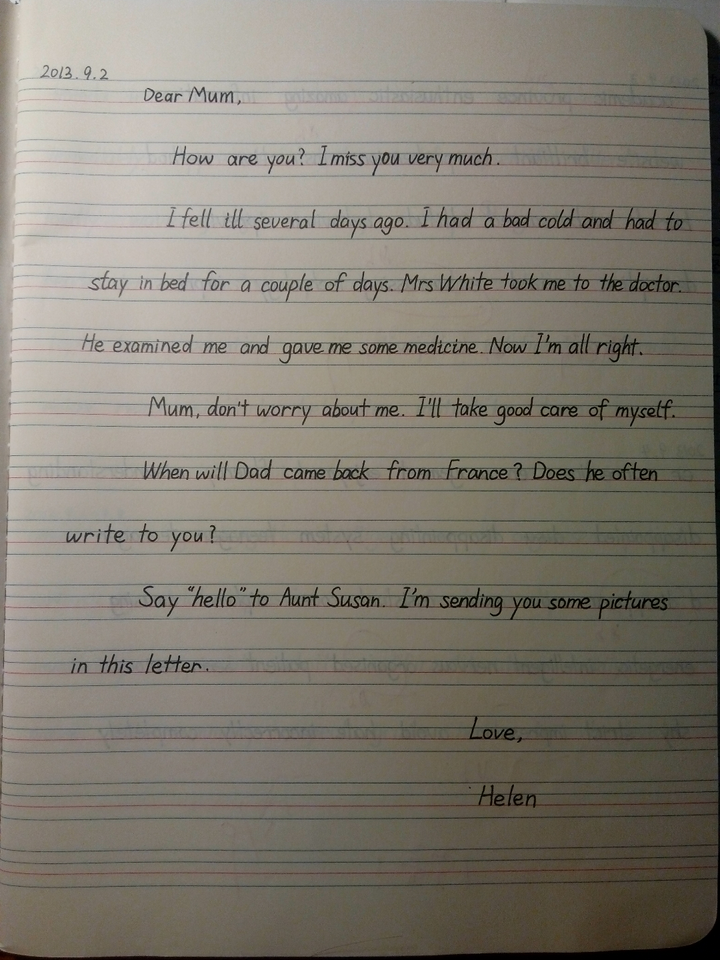 2013.9.2
Dear Mum,
How are you? I miss you very much.
I fell ill several days ago. I had a bad cold and had to
stay in bed for a couple of days. Mrs White took me to the doctor.
He examined me and gave me some medicine. Now I'm all right.
Mum, don't worry about me. I'll take good care of myself.
When will Dad came back from France? Does he often
write to you?
Say "hello" to Aunt Susan. I'm sending you some pictures
in this letter.
Love,
Helen